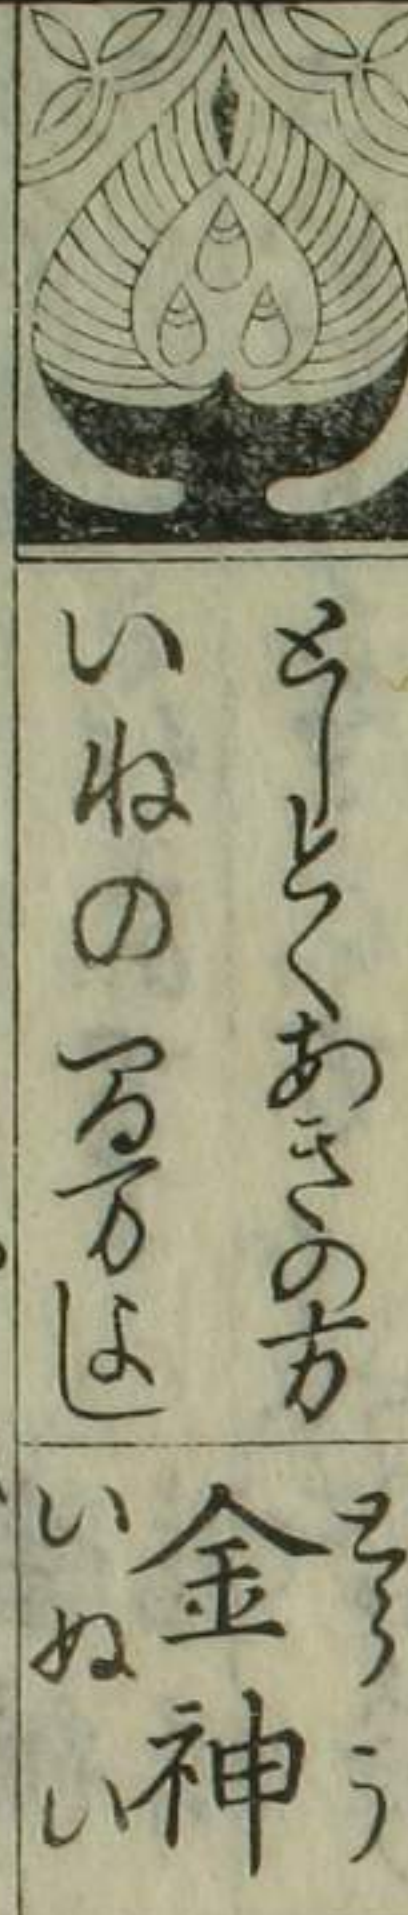 としとくあきの方
いねの間万よし
とら う
金神
いぬ い